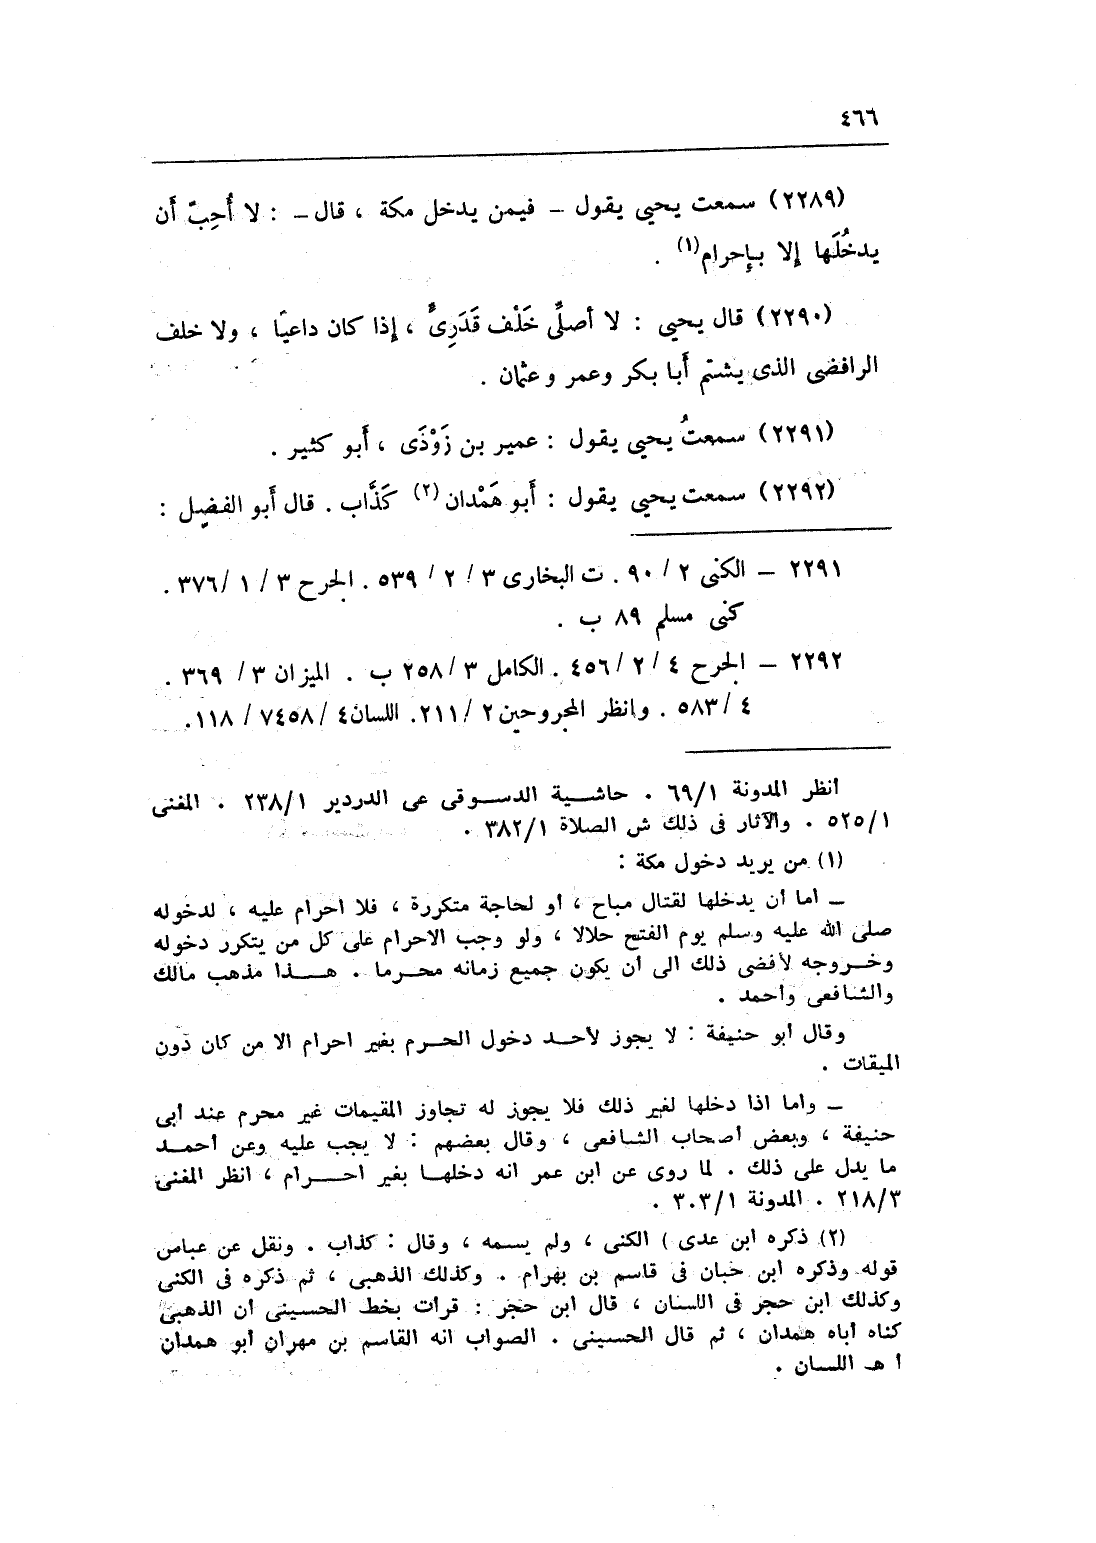 ٤٦٦
(٢٢٨٩) سمعت يحيى يقول – فيمن يدخل مكة ، قال – : لا أُحِبّ أَن
يدخُلَها إلا بإحرام(١) .
(٢٢٩٠) قال يحيى : لا أصلِّى خَلْف قَدَرِىٍّ ، إذا كان داعيًا ، ولا خلف
الرافضى الذى يشتم أَبا بكر وعمر وعثمان .
(٢٢٩١) سمعتُ يحيى يقول : عمير بن زَوْذَى ، أَبو كثير .
(٢٢٩٢) سمعت يحيى يقول : أَبو هَمْدان(٢) كَذَّاب . قال أَبو الفضل :
٢٢٩١ – الكنى ٢ / ٩٠ . ت البخارى ٣ / ٢ / ٥٣٩ . الجرح ٣ / ١ / ٣٧٦ .
كنى مسلم ٨٩ ب .
٢٢٩٢ – الجرح ٤ / ٢ / ٤٥٦ . الكامل ٣ / ٢٥٨ ب . الميزان ٣ / ٣٦٩ .
٤ / ٥٨٣ . وانظر المجروحين ٢ / ٢١١. اللسان ٤ / ٧٤٥٨ / ١١٨.
انظر المدونة ٦٩/١ . حاشية الدسوقى عى الدردير ٢٣٨/١ . المغنى
٥٢٥/١ . والآثار فى ذلك ش الصلاة ٣٨٢/١ .
(١) من يريد دخول مكة :
– اما ان يدخلها لقتال مباح ، أو لحاجة متكررة ، فلا احرام عليه ، لدخوله
صلى الله عليه وسلم يوم الفتح حلالا ، ولو وجب الاحرام على كل من يتكرر دخوله
وخروجه لأفضى ذلك الى أن يكون جميع زمانه محرما . هذا مذهب مالك
والشافعى واحمد .
وقال أبو حنيفة : لا يجوز لأحد دخول الحرم بغير احرام الا من كان دون
الميقات .
– واما اذا دخلها لغير ذلك فلا يجوز له تجاوز المقيمات غير محرم عند أبى
حنيفة ، وبعض أصحاب الشافعى ، وقال بعضهم : لا يجب عليه وعن أحمد
ما يدل على ذلك . لما روى عن ابن عمر انه دخلها بغير احرام ، انظر المغنى
٢١٨/٣ . المدونة ٣٠٣/١ .
(٢) ذكره ابن عدى ) الكنى ، ولم يسمه ، وقال : كذاب . ونقل عن عباس
قوله وذكره ابن حبان فى قاسم بن بهرام . وكذلك الذهبى ، ثم ذكره فى الكنى
وكذلك ابن حجر فى اللسان ، قال ابن حجر : قرأت بخط الحسينى أن الذهبى
كناه أباه همدان ، ثم قال الحسينى . الصواب انه القاسم بن مهران أبو همدان
ا هـ اللسان .